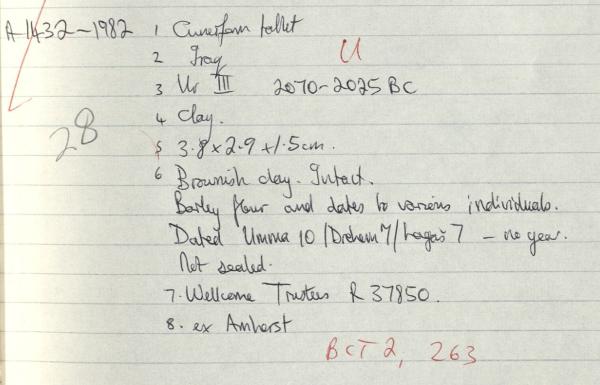 A 1432-1982 1 Cuneiform tablet
2 Iraq U
3 Ur III 2070-2025 BC
28
4 Clay.
5 3.8 x 2.9 x 1.5 cm.
6 Brownish clay. Intact.
Barley flour and dates to various individuals.
Dated Umma 10 / Drehem 7 / Lagaš 7 - no year.
Not sealed.
7. Wellcome Trustees R 37850.
8. ex Amherst
BCT 2, 263